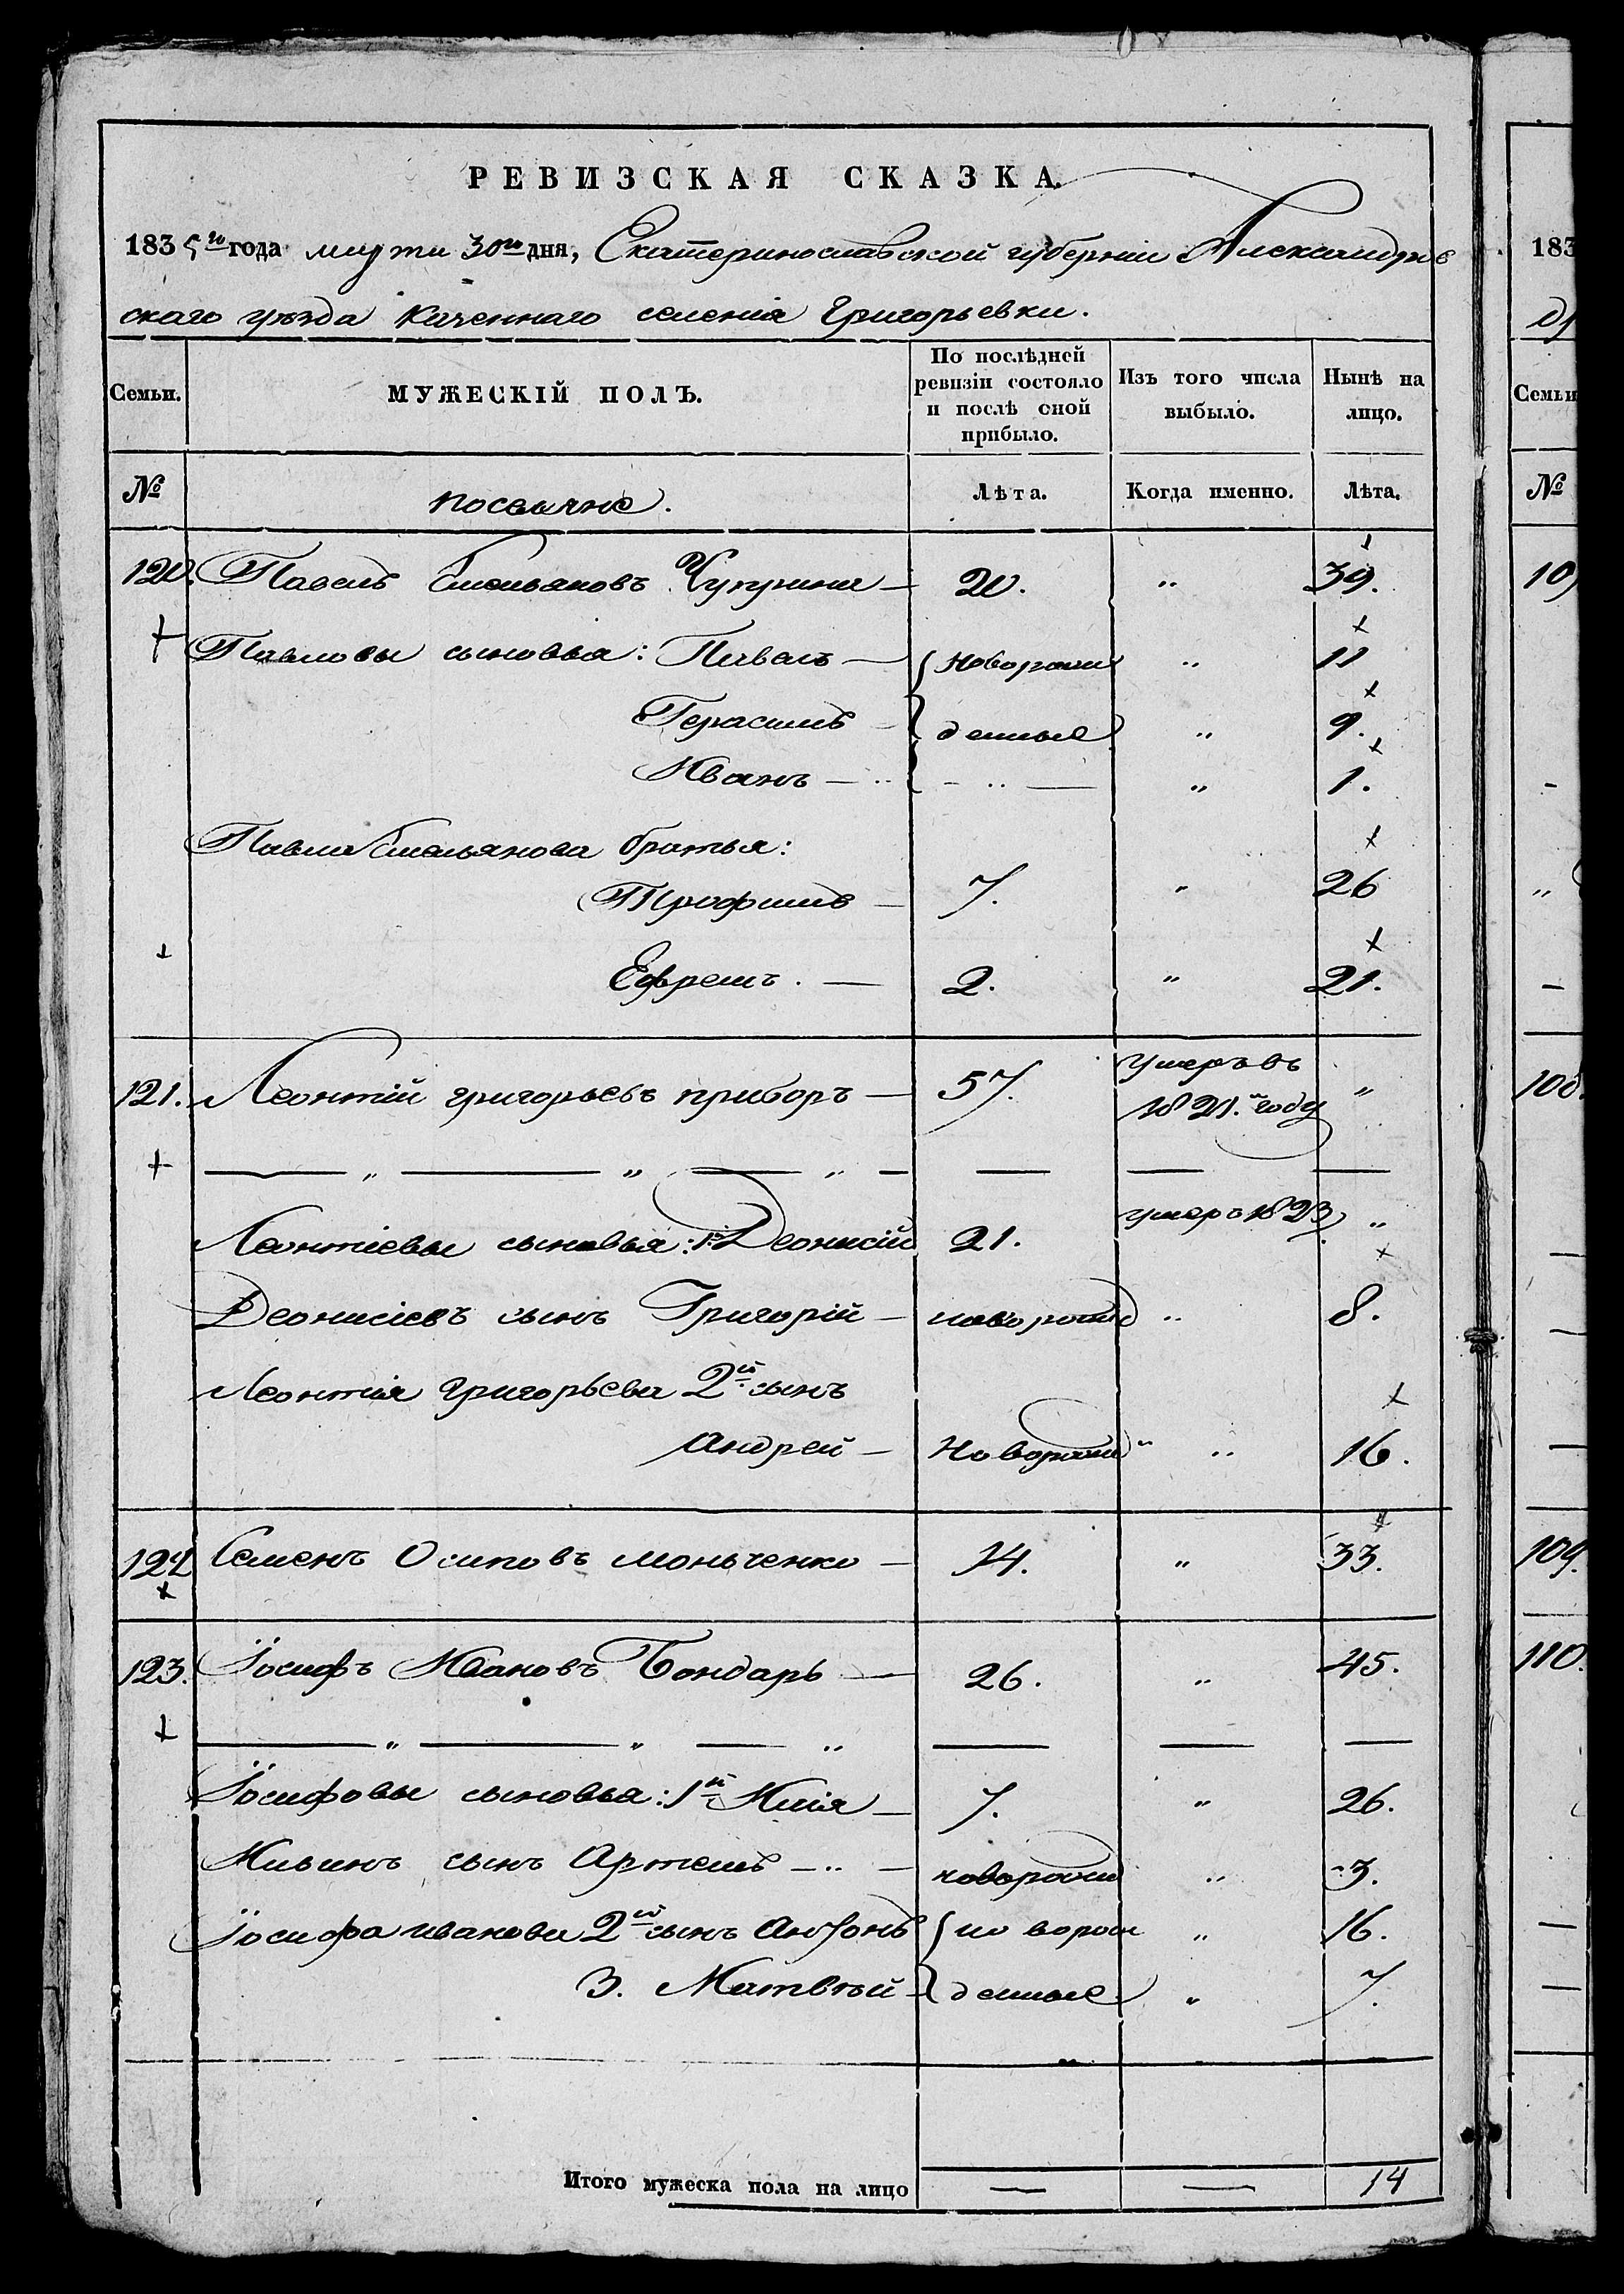 РЕВИЗСКАЯ СКАЗКА.
1835го года марта 30го дня, Екатеринославской губерніи Александров
скаго уѣзда Казеннаго селенія Григорьевки.
Семьи.
МУЖЕСКІЙ ПОЛЪ.
По послѣдней ревизіи состояло и послѣ оной прибыло.
Изъ того числа выбыло.
Нынѣ на лицо.
№
Лѣта.
Когда именно.
Лѣта.
120. Павелъ Емельяновъ — 20. „ 39.
Павловы сыновья: Павелъ — новорож „ 11
Герасимъ — денные „ 9.
Иванъ — „ — „ — „ 1.
Павла Емельянова братья:
Трофимъ — 7. „ 26
Ефремъ. — 2. „ 21.
121. Леонтій григорьевъ приборъ — 57. умеръ въ 1821.м году „
— „ — „ — „ — — — —
Леонтіевы сыновья: 1й Деонисій 21. умеръ 1823 „
Деонисіевъ сынъ Григорій — новорожд „ 8.
Леонтія Григорьева 2й сынъ
Андрей — Новорожд „ 16.
122 Семенъ Осиповъ моньченко — 14. „ 33.
123. Іосифъ Ивановъ Бондарь — 26. „ 45.
— „ — „ — „ — — —
Іосифовы сыновья: 1й Илія — 7. „ 26.
Ильинъ сынъ Артемъ — „ — новорожд „ 3.
Іосифа иванова 2й сынъ Анѳонъ новорож „ 16.
3. Матвѣй — денные „ 7.
Итого мужеска пола на лицо — — 14
183
Семьи
№
109
108.
109.
110.